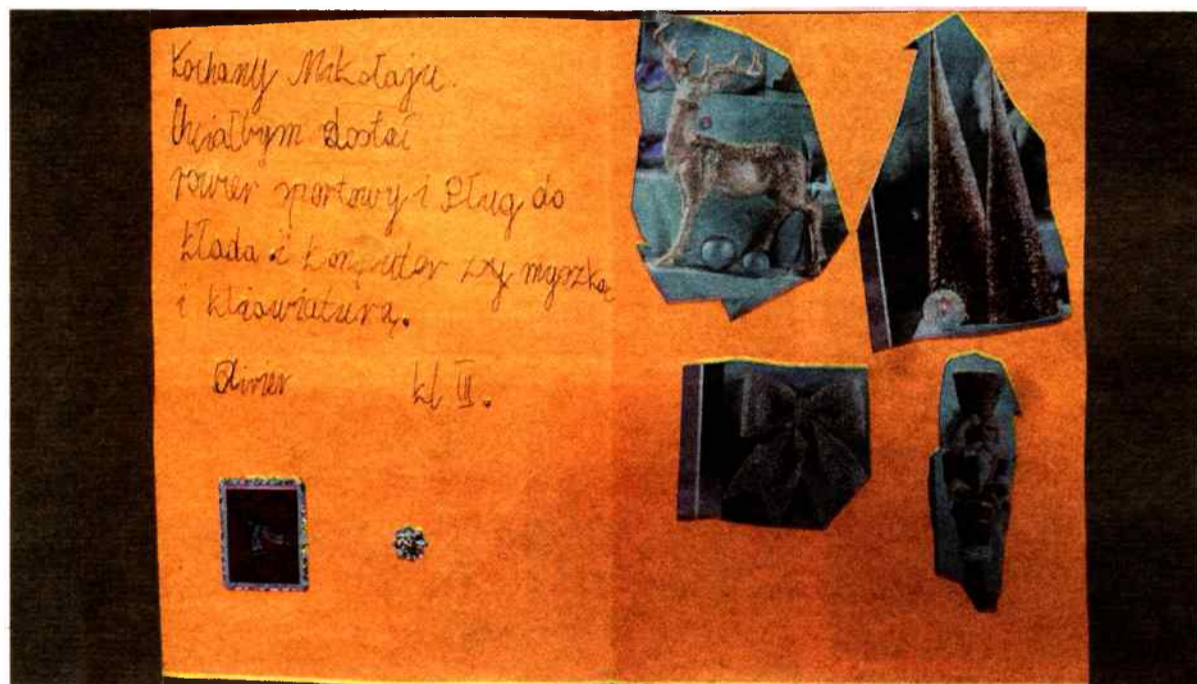 Kochany Mikołaju.
Chciałbym dostać
rower sportowy i Pług do
kłada i komputer z myszką
i kławiaturą.
Oliwier kl III.